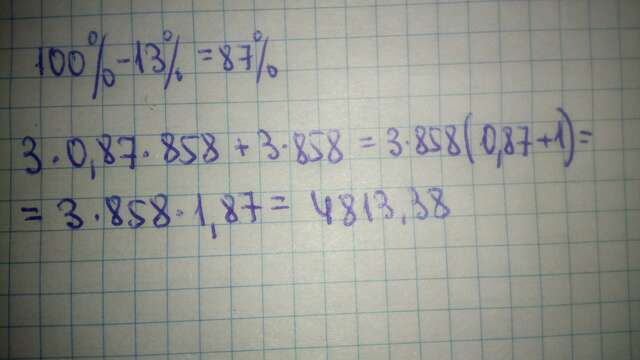 100% - 13% = 87%
3 · 0,87 · 858 + 3 · 858 = 3 · 858 (0,87 + 1) =
= 3 · 858 · 1,87 = 4813,38